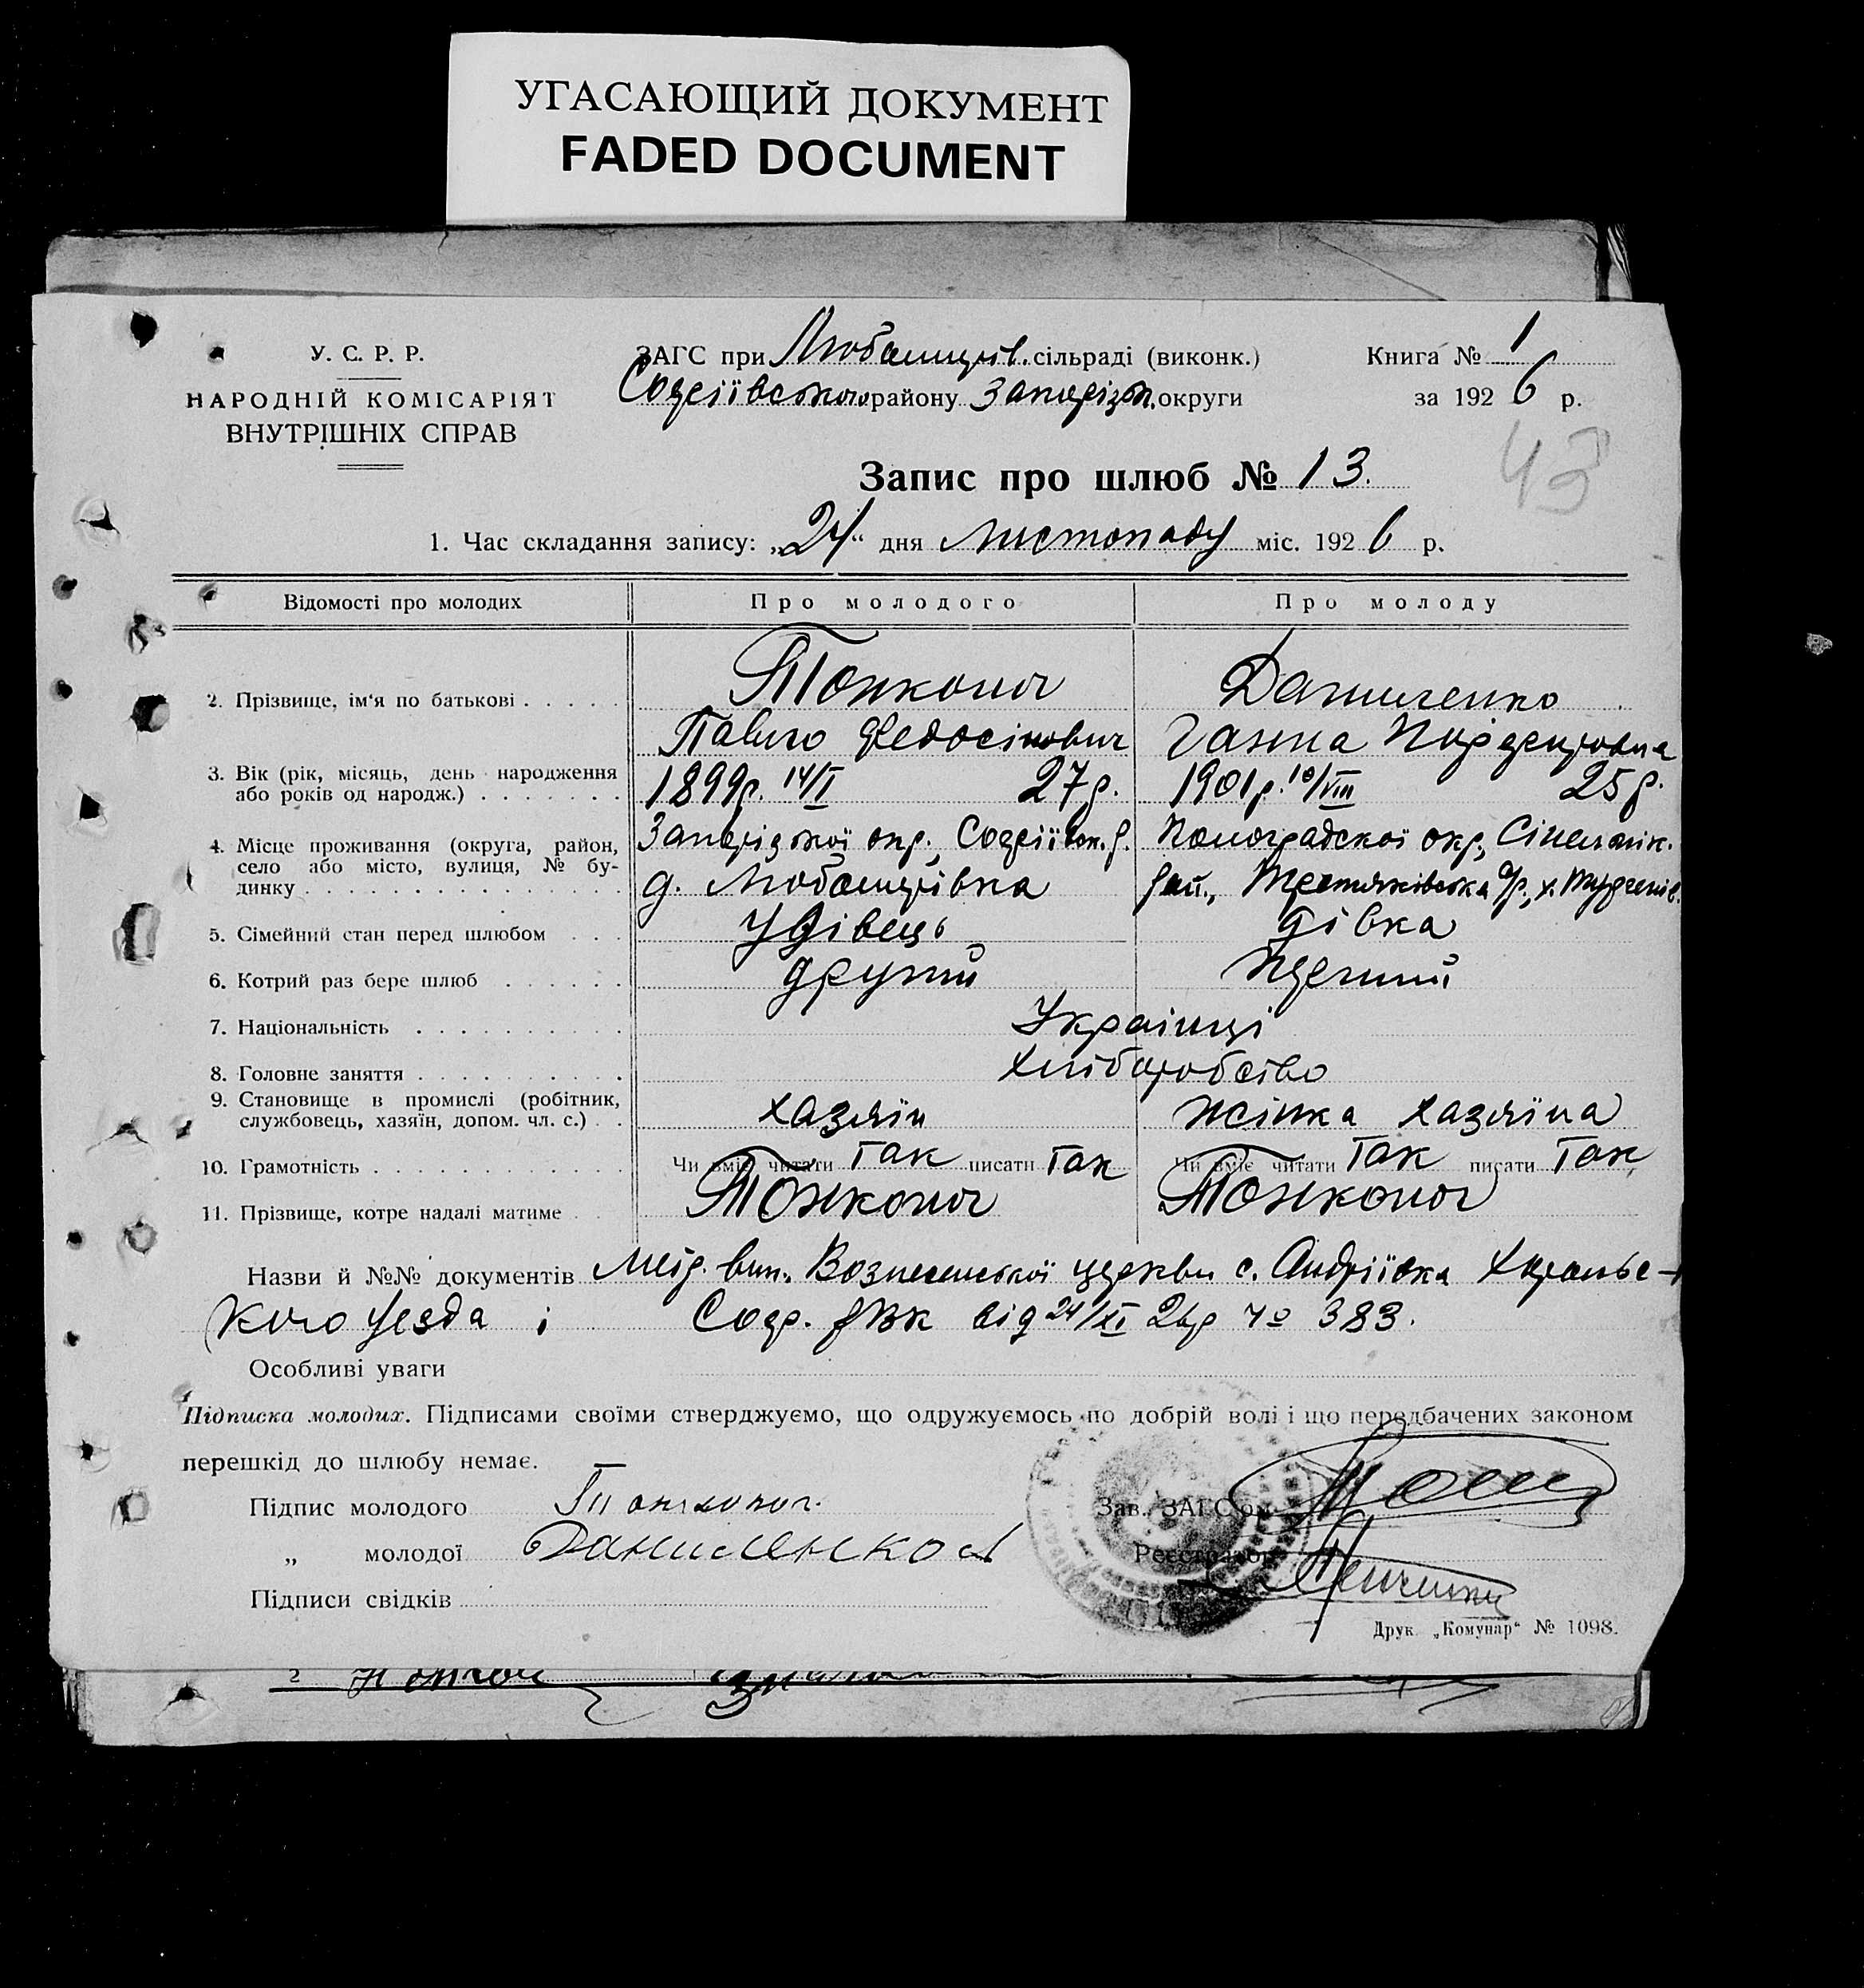 УГАСАЮЩИЙ ДОКУМЕНТ
FADED DOCUMENT
У. С. Р. Р.
НАРОДНІЙ КОМІСАРІЯТ
ВНУТРІШНІХ СПРАВ
ЗАГС при Любомирів. сільраді (виконк.)
Софіївського району Запоріз. округи
Книга № 1
за 1926 р.
43
Запис про шлюб № 13.
1. Час складання запису: „24“ дня листопаду міс. 1926 р.
Відомості про молодих Про молодого Про молоду
2. Прізвище, ім'я по батькові Тонконог Даниленко
Павло Федосійович Ганна
3. Вік (рік, місяць, день народження
або років од народж.) 1899р. 14/I 27р. 1901р. 10/VIII 25р.
4. Місце проживання (округа, район,
село або місто, вулиця, № бу-
динку
Запорізької окр., Софіївск. р.
д. Любомирівка
Павлоградскої окр., Сінельник.
рай.,
5. Сімейний стан перед шлюбом удівець дівка
6. Котрий раз бере шлюб другий перший
7. Національність Українці
8. Головне заняття хліборобство
9. Становище в промислі (робітник,
службовець, хазяїн, допом. чл. с.) хазяїн жінка хазяїна
10. Грамотність Чи вміє читати так писати так Чи вміє читати так писати так
11. Прізвище, котре надалі матиме Тонконог Тонконог
Назви й №№ документів Метр. вип. Вознесенської церкви с. Андріївка
уезда і Софр. РВК від 24/XI 26р № 383.
Особливі уваги
Підписка молодих. Підписами своїми стверджуємо, що одружуємось по добрій волі і що передбачених законом
перешкід до шлюбу немає.
Підпис молодого Тонконог.
„ молодої Даниленкова
Підписи свідків
Зав. ЗАГСом
Реєстратор
Друк. „Комунар“ № 1098.